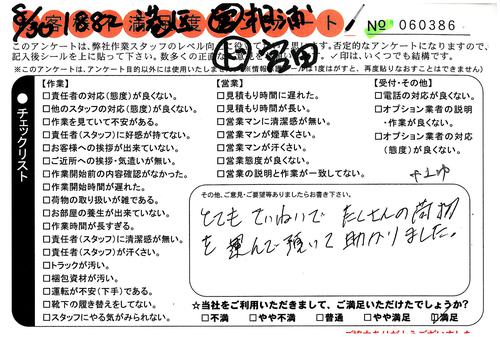 8/30 1882 足度 ト
No 060386
このアンケートは、弊社作業スタッフのレベル向
記入後シールを上に貼って下さい。
否定的なアンケートになりますので、
✓印は、いくつでも結構です。
※このアンケートは、アンケート目的以外には使用いたしません。
1度はがすと、再度貼りなおすことはできません)
チェックリスト
【作業】
□責任者の対応(態度)が良くない。
□他のスタッフの対応(態度)が良くない。
□作業を見ていて不安がある。
□責任者(スタッフ)に好感が持てない。
□お客様への挨拶が出来ていない。
□ご近所への挨拶・気遣いが無い。
□作業開始前の内容確認がなかった。
□作業開始時間が遅れた。
□荷物の取り扱いが雑である。
□お部屋の養生が出来ていない。
□作業時間が長すぎる。
□責任者(スタッフ)に清潔感が無い。
□責任者(スタッフ)が汗くさい。
□トラックが汚い。
□梱包資材が汚い。
□運転が不安(下手)である。
□靴下の履き替えをしてない。
□スタッフにやる気がみられない。
【営業】
□見積もり時間に遅れた。
□見積もり時間が長い。
□営業マンに清潔感が無い。
□営業マンが煙草くさい。
□営業マンが汗くさい。
□営業態度が良くない。
□営業の説明と作業が一致してない。
【受付・その他】
□電話の対応が良くない。
□オプション業者の説明
・作業が良くない。
□オプション業者の対応
(態度)が良くない。
その他、ご意見・ご要望等ありましたらお書き下さい。
とても ていねいで たくさんの荷物
を 運んで頂いて 助かりました。
☆当社をご利用いただきまして、ご満足いただけたでしょうか?
□不満 □やや不満 □普通 □やや満足 ☑満足